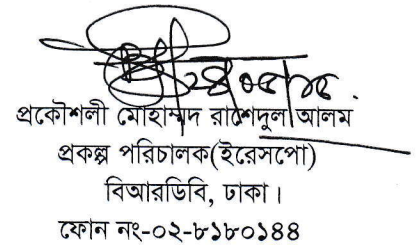 প্রকৌশলী মোহাম্মদ রাশেদুল আলম
প্রকল্প পরিচালক(ইরেসপো)
বিআরডিবি, ঢাকা।
ফোন নং-০২-৮১৮০১৪৪